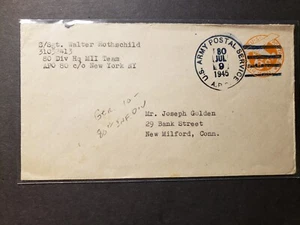 S/Sgt. Walter Rothschild
31057413
80 Div Hq MII Team
APO 80 c/o New York NY
U.S. ARMY POSTAL SERVICE
80
JUL
9
1945
A.P.O.
Mr. Joseph Golden
29 Bank Street
New Milford, Conn.